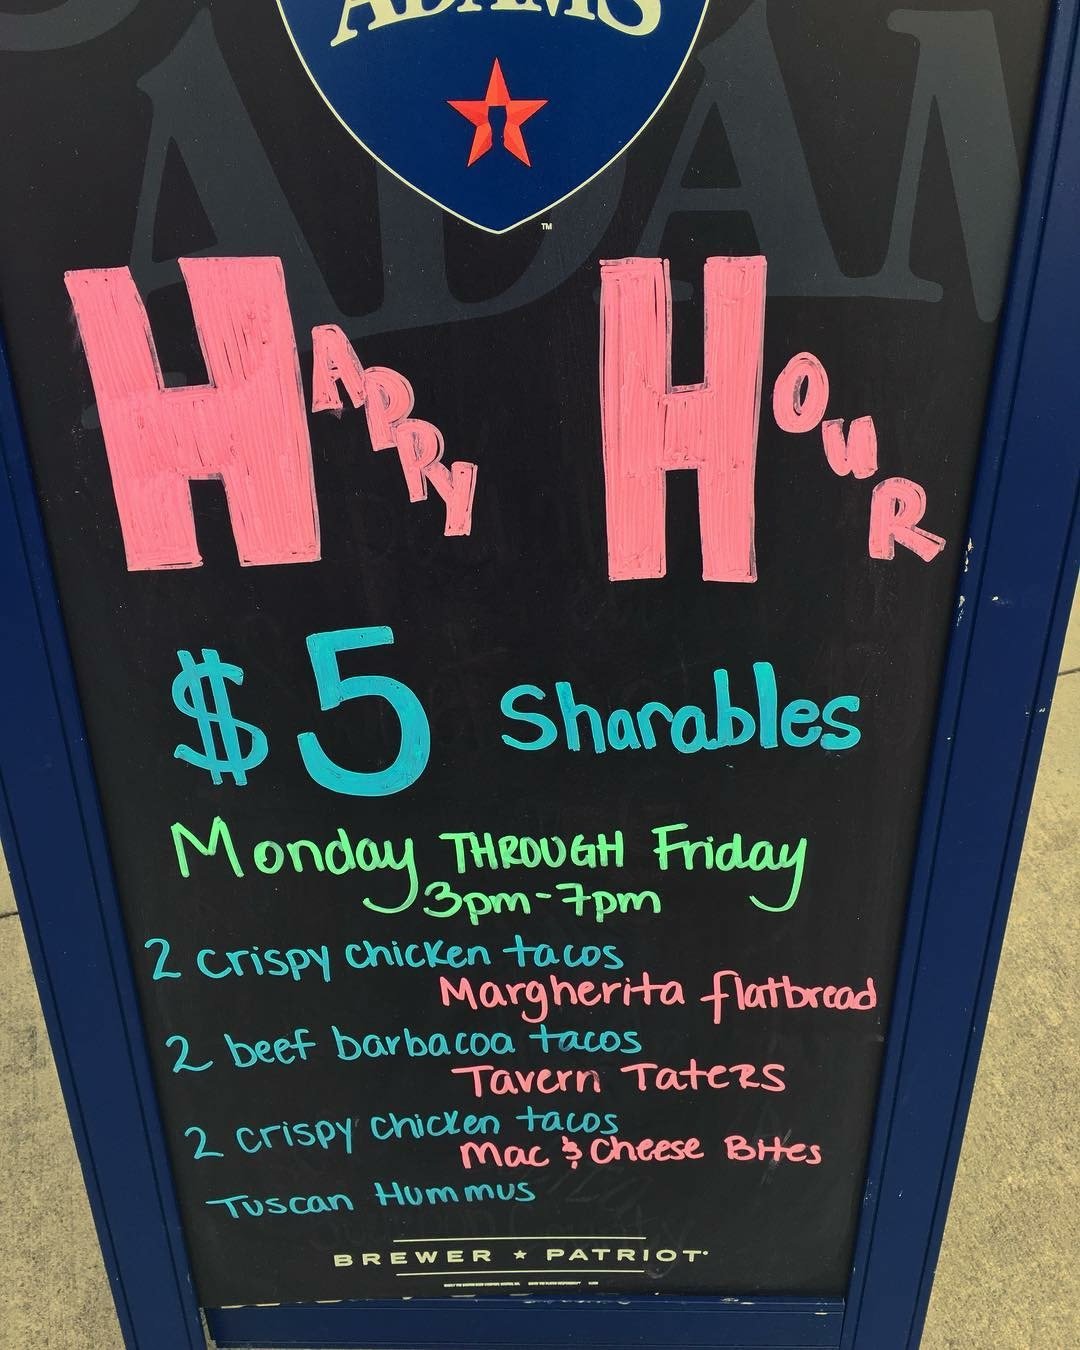 ADAMS
TM
HAPPY HOUR
$5 Sharables
Monday THROUGH Friday
3pm-7pm
2 crispy chicken tacos
Margherita flatbread
2 beef barbacoa tacos
Tavern Taters
2 crispy chicken tacos
Mac & Cheese Bites
Tuscan Hummus
BREWER ★ PATRIOT